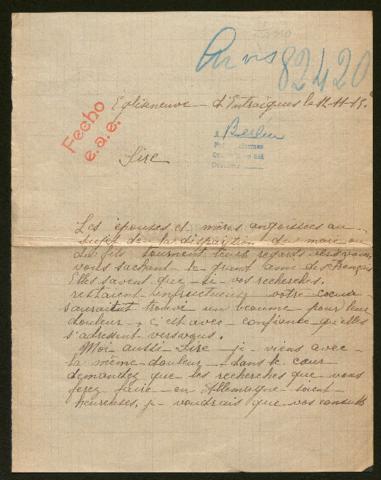 Avis
82420
Fecho
e.a.e.
Egliseneuve - d'Entraigues le 12-11-15.
à Berlin
Sire
Les épouses et mères angoissées au
sujet de la disparition du mari ou
du fils tournent leurs regards vers vous,
vous sachant le grand ami des Français
Elles savent que si vos recherches
restaient infructueuses votre coeur
saurait trouver un beaume pour leur
douleur, c'est avec confiance qu'elles
s'adressent vers vous.
Moi aussi Sire je viens avec
la même douleur dans le coeur
demander que les recherches que vous
ferez faire en Allemagne soient
heureuses. je voudrais que vos consuls